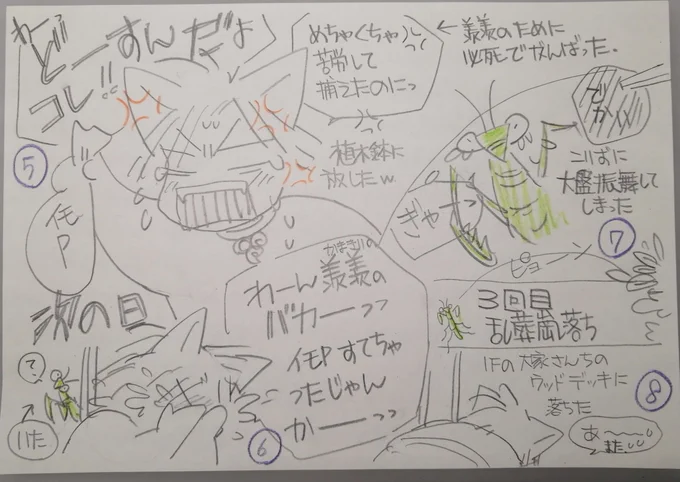 わーっ
どーすんだよ
コレ!!
⑤
イモP
めちゃくちゃ
苦労して
捕えたのにっ
植木鉢に
放したw
← 義義のために
必死でがんばった.
でかw
ニいずに
大盤振舞して
しまった
⑦
ぎゃー
次の日
?
いた
⑥
わーん義義の
かまぎりの
バカーっっ
イモPすてちゃ
ったじゃん
かーーっっ
ピョーン
3回目
乱葬崗落ち
1Fの大家さんちの
ウッドデッキに
落ちた
⑧
あ〜〜
また